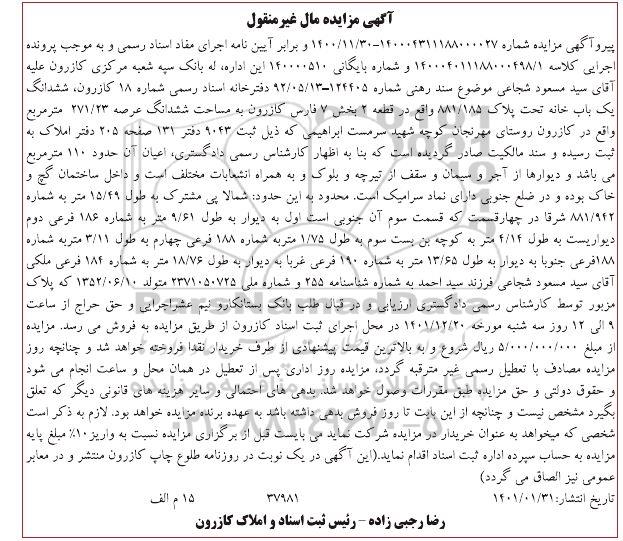 آگهی مزایده مال غیرمنقول
پیروآگهی مزایده شماره ۱۴۰۰۰۴۳۱۱۱۸۸۰۰۰۰۲۷-۱۴۰۰/۱۱/۳۰ و برابر آیین نامه اجرای مفاد اسناد رسمی و به موجب پرونده
اجرایی کلاسه ۱۴۰۰۰۴۰۱۱۱۸۸۰۰۰۴۹۸/۱ و شماره بایگانی ۱۴۰۰۰۰۵۱۰ این اداره، له بانک سپه شعبه مرکزی کازرون علیه
آقای سید مسعود شجاعی موضوع سند رهنی شماره ۱۲۴۴۰۵-۹۲/۰۵/۱۳ دفترخانه اسناد رسمی شماره ۱۸ کازرون، ششدانگ
یک باب خانه تحت پلاک ۸۸۱/۱۸۵ واقع در قطعه ۲ بخش ۷ فارس کازرون به مساحت ششدانگ عرصه ۲۷۱/۲۳ مترمربع
واقع در کازرون روستای مهرنجان کوچه شهید سرمست ابراهیمی که ذیل ثبت ۹۰۴۳ دفتر ۱۳۱ صفحه ۲۰۵ دفتر املاک به
ثبت رسیده و سند مالکیت صادر گردیده است که بنا به اظهار کارشناس رسمی دادگستری، اعیان آن حدود ۱۱۰ مترمربع
می باشد و دیوارها از آجر و سیمان و سقف از تیرچه و بلوک و به همراه انشعابات مختلف است و داخل ساختمان گچ و
خاک بوده و در ضلع جنوبی دارای نمای سرامیک است. محدود به این حدود: شمالا پی مشترک به طول ۱۵/۴۹ متر به شماره
۸۸۱/۹۴۲ شرقا در چهارقسمت که قسمت سوم آن جنوبی است اول به دیوار به طول ۹/۶۱ متر به شماره ۱۸۶ فرعی دوم
دیواریست به طول ۴/۱۴ متر به کوچه بن بست سوم به طول ۱/۷۵ متربه شماره ۱۸۸ فرعی چهارم به طول ۳/۱۱ متربه شماره
۱۸۸فرعی جنوبا به دیوار به طول ۱۳/۶۵ متر به شماره ۱۹۰ فرعی غربا به دیوار به طول ۱۸/۷۶ متر به شماره ۱۸۴ فرعی ملکی
آقای سید مسعود شجاعی فرزند سید احمد به شماره شناسنامه ۲۵۵ و شماره ملی ۲۳۷۱۰۵۰۷۲۵ متولد ۱۳۵۲/۰۶/۱۰ که پلاک
مزبور توسط کارشناس رسمی دادگستری ارزیابی و در قبال طلب بانک بستانکارو نیم عشراجرایی و حق حراج از ساعت
۹ الی ۱۲ روز سه شنبه مورخه ۱۴۰۱/۱۲/۲۰ در محل اجرای ثبت اسناد کازرون از طریق مزایده به فروش می رسد. مزایده
از مبلغ ۵/۰۰۰/۰۰۰/۰۰۰ ریال شروع و به بالاترین قیمت پیشنهادی از طرف خریدار نقدا فروخته خواهد شد و چنانچه روز
مزایده مصادف با تعطیل رسمی غیر مترقبه گردد، مزایده روز اداری پس از تعطیل در همان محل و ساعت انجام می شود
و حقوق دولتی و حق مزایده طبق مقررات وصول خواهد شد. بدهی های احتمالی و سایر هزینه های قانونی دیگر که تعلق
بگیرد مشخص نیست و چنانچه از این بابت تا روز فروش بدهی داشته باشد به عهده برنده مزایده خواهد بود. لازم به ذکر است
شخصی که میخواهد به عنوان خریدار در مزایده شرکت نماید می بایست قبل از برگزاری مزایده نسبت به واریز۱۰٪ مبلغ پایه
مزایده به حساب سپرده اداره ثبت اسناد اقدام نماید.(این آگهی در یک نوبت در روزنامه طلوع چاپ کازرون منتشر و در معابر
عمومی نیز الصاق می گردد)
تاریخ انتشار:۱۴۰۱/۰۱/۳۱ ۳۷۹۸۱ ۱۵ م الف
رضا رجبی زاده - رئیس ثبت اسناد و املاک کازرون